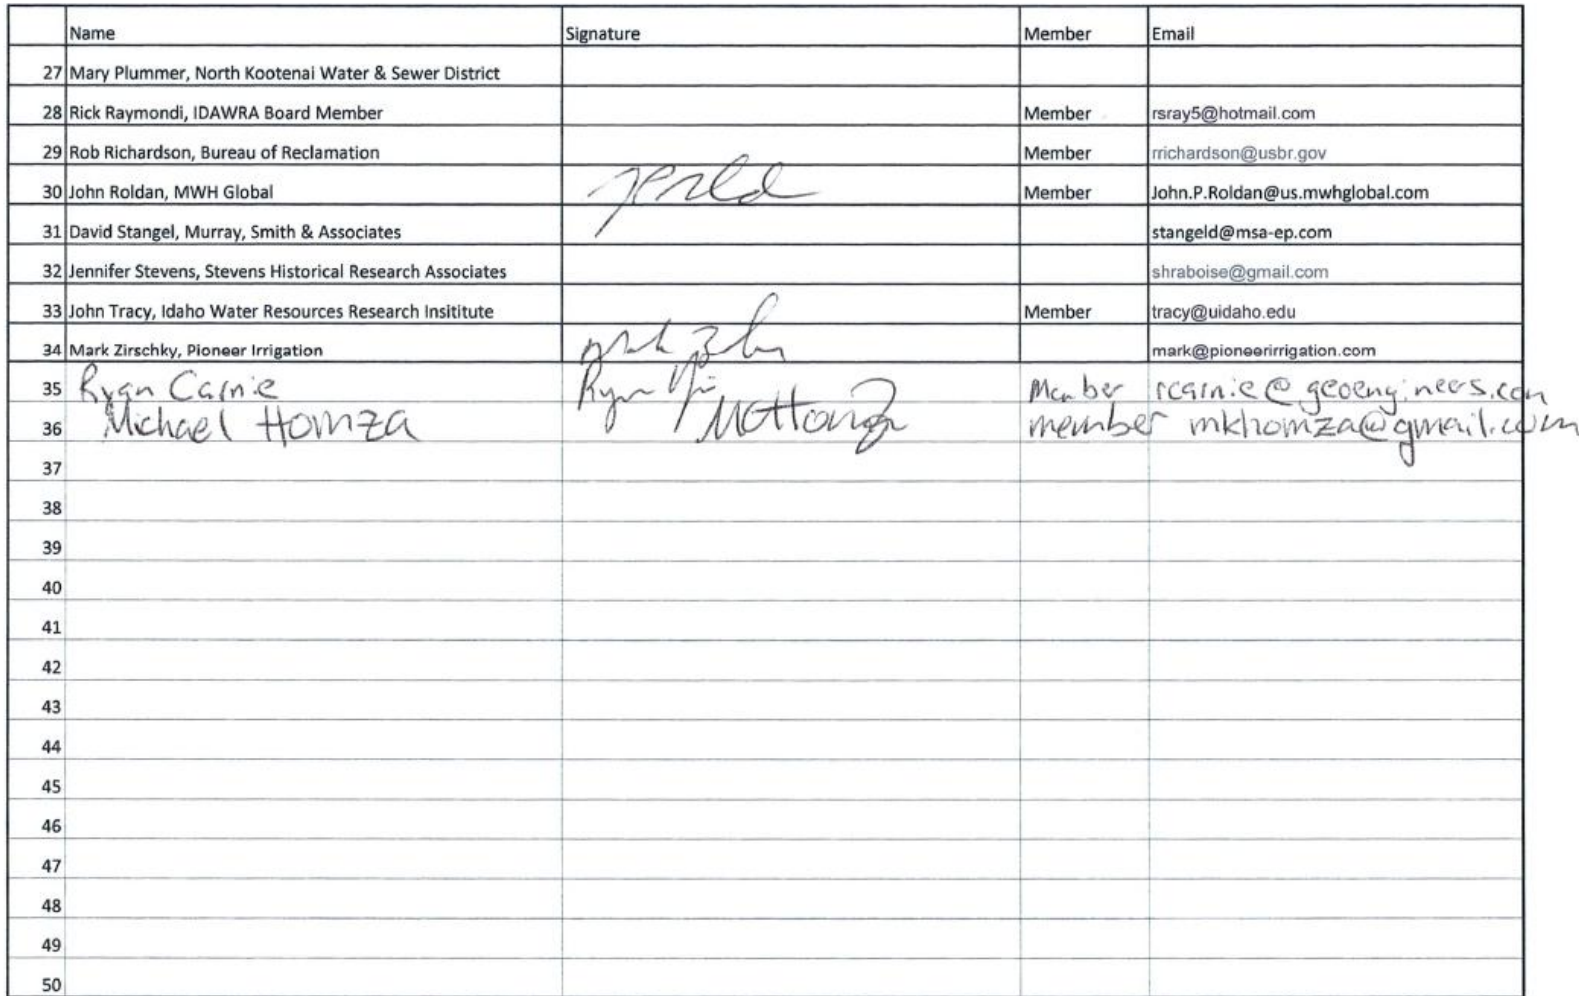 Name Signature Member Email
27 Mary Plummer, North Kootenai Water & Sewer District
28 Rick Raymondi, IDAWRA Board Member Member rsray5@hotmail.com
29 Rob Richardson, Bureau of Reclamation Member rrichardson@usbr.gov
30 John Roldan, MWH Global Member John.P.Roldan@us.mwhglobal.com
31 David Stangel, Murray, Smith & Associates stangeld@msa-ep.com
32 Jennifer Stevens, Stevens Historical Research Associates shraboise@gmail.com
33 John Tracy, Idaho Water Resources Research Insititute Member tracy@uidaho.edu
34 Mark Zirschky, Pioneer Irrigation mark@pioneerirrigation.com
35 Ryan Carnie Member rcarnie@geoengineers.com
36 Michael Homza member mkhomza@gmail.com
37
38
39
40
41
42
43
44
45
46
47
48
49
50